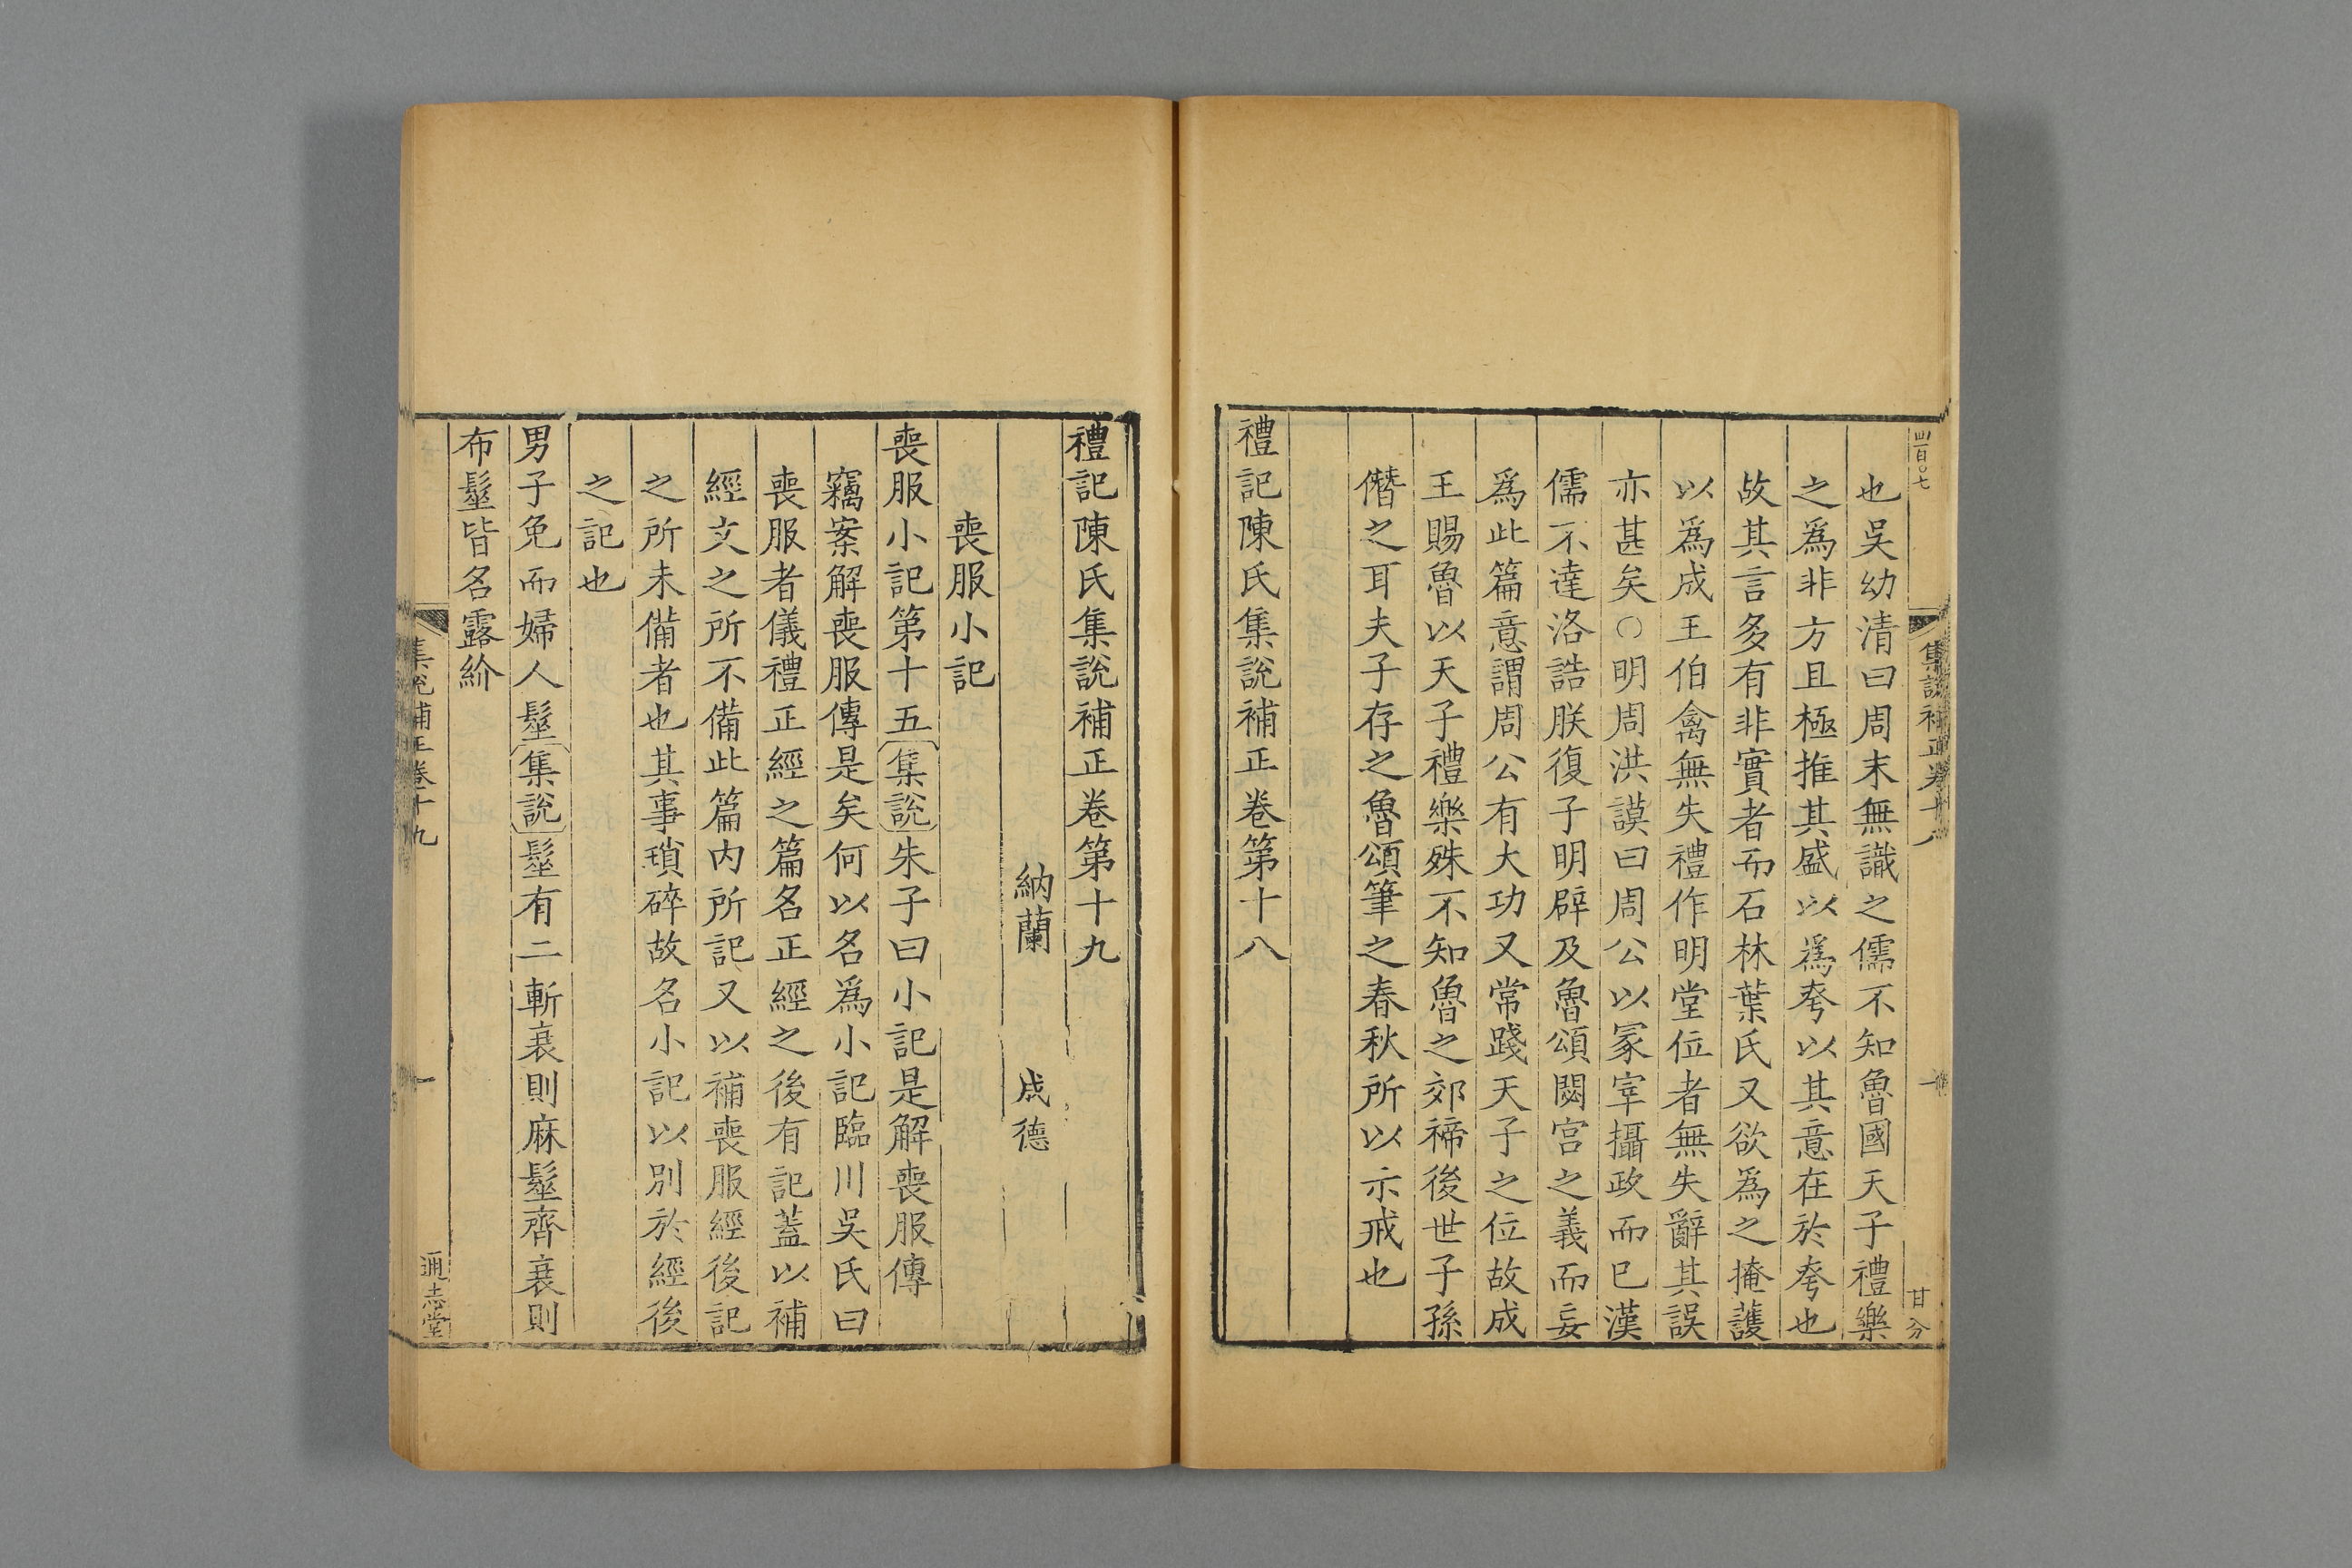 也吳幼清曰周末無識之儒不知魯國天子禮樂
之爲非方且極推其盛以爲夸以其意在於夸也
故其言多有非實者而石林葉氏又欲爲之掩護
以爲成王伯禽無失禮作明堂位者無失辭其誤
亦甚矣○明周洪謨曰周公以冢宰攝政而已漢
儒不達洛誥朕復子明辟及魯頌閟宫之義而妄
爲此篇意謂周公有大功又常踐天子之位故成
王賜魯以天子禮樂殊不知魯之郊禘後世子孫
僭之耳夫子存之魯頌筆之春秋所以示戒也
禮記陳氏集說補正卷第十八
禮記陳氏集說補正卷第十九
納蘭 成德
喪服小記
喪服小記第十五集說朱子曰小記是解喪服傳
竊案解喪服傳是矣何以名爲小記臨川吳氏曰
喪服者儀禮正經之篇名正經之後有記蓋以補
經文之所不備此篇内所記又以補喪服經後記
之所未備者也其事瑣碎故名小記以別於經後
之記也
男子免而婦人髽集說髽有二斬衰則麻髽齊衰則
布髽皆名露紒
集說補正卷十九
一
通志堂